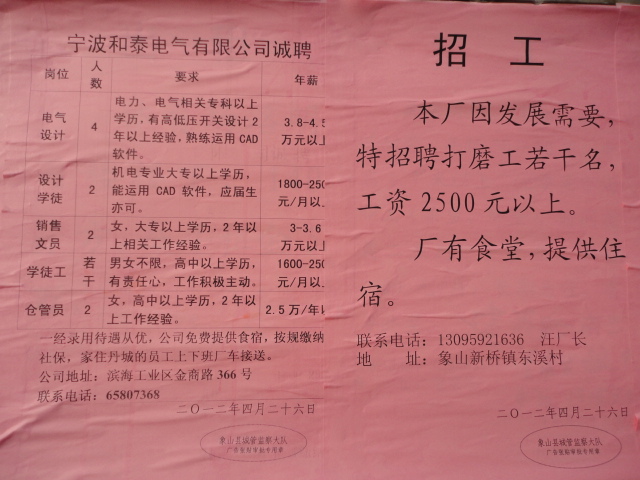 宁波和泰电气有限公司诚聘
岗位 人数 要求 年薪
电气设计 4 电力、电气相关专科以上学历，有高低压开关设计2年以上经验，熟练运用CAD软件。 3.8-4.5万元以上
设计学徒 2 机电专业大专以上学历，能运用CAD软件，应届生亦可。 1800-250元/月以
销售文员 2 女，大专以上学历，2年以上相关工作经验。 3-3.6万元以上
学徒工 若干 男女不限，高中以上学历，有责任心，工作积极主动。 1600-250元/月以
仓管员 2 女，高中以上学历，2年以上工作经验。 2.5万/年以
一经录用待遇从优，公司免费提供食宿，按规缴纳
社保，家住丹城的员工上下班厂车接送。
公司地址：滨海工业区金商路366号
联系电话：65807368
二〇一二年四月二十六日
象山县城管监察大队
广告张贴审批专用章
招 工
本厂因发展需要，
特招聘打磨工若干名，
工资2500元以上。
厂有食堂，提供住
宿。
联系电话：13095921636 汪厂长
地 址：象山新桥镇东溪村
二〇一二年四月二十六日
象山县城管监察大队
广告张贴审批专用章